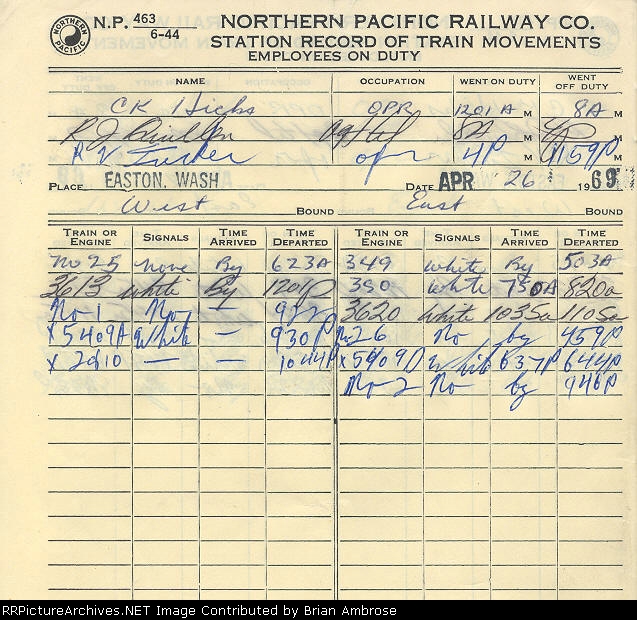 NORTHERN PACIFIC
N.P. 463 6-44
NORTHERN PACIFIC RAILWAY CO.
STATION RECORD OF TRAIN MOVEMENTS
EMPLOYEES ON DUTY
NAME OCCUPATION WENT ON DUTY WENT OFF DUTY
CK Hicks OPR 1201 A M 8A M
R J 8A M M
R V opr 4P M 1159P M
PLACE EASTON, WASH DATE APR 26 1969
West BOUND East BOUND
TRAIN OR ENGINE SIGNALS TIME ARRIVED TIME DEPARTED TRAIN OR ENGINE SIGNALS TIME ARRIVED TIME DEPARTED
No 25 none By 623A 349 white By 503A
3613 white By 1201P 350 white 750A 820a
No-1 No — 922P 3620 white 1035a 1105a
x5409A White — 930P No 26 No by 459P
x 2010 — — 1044P x5409D White 637P 644P
No-2 No by 946P
RailPictureArchives.NET Image Contributed by Brian Ambrose